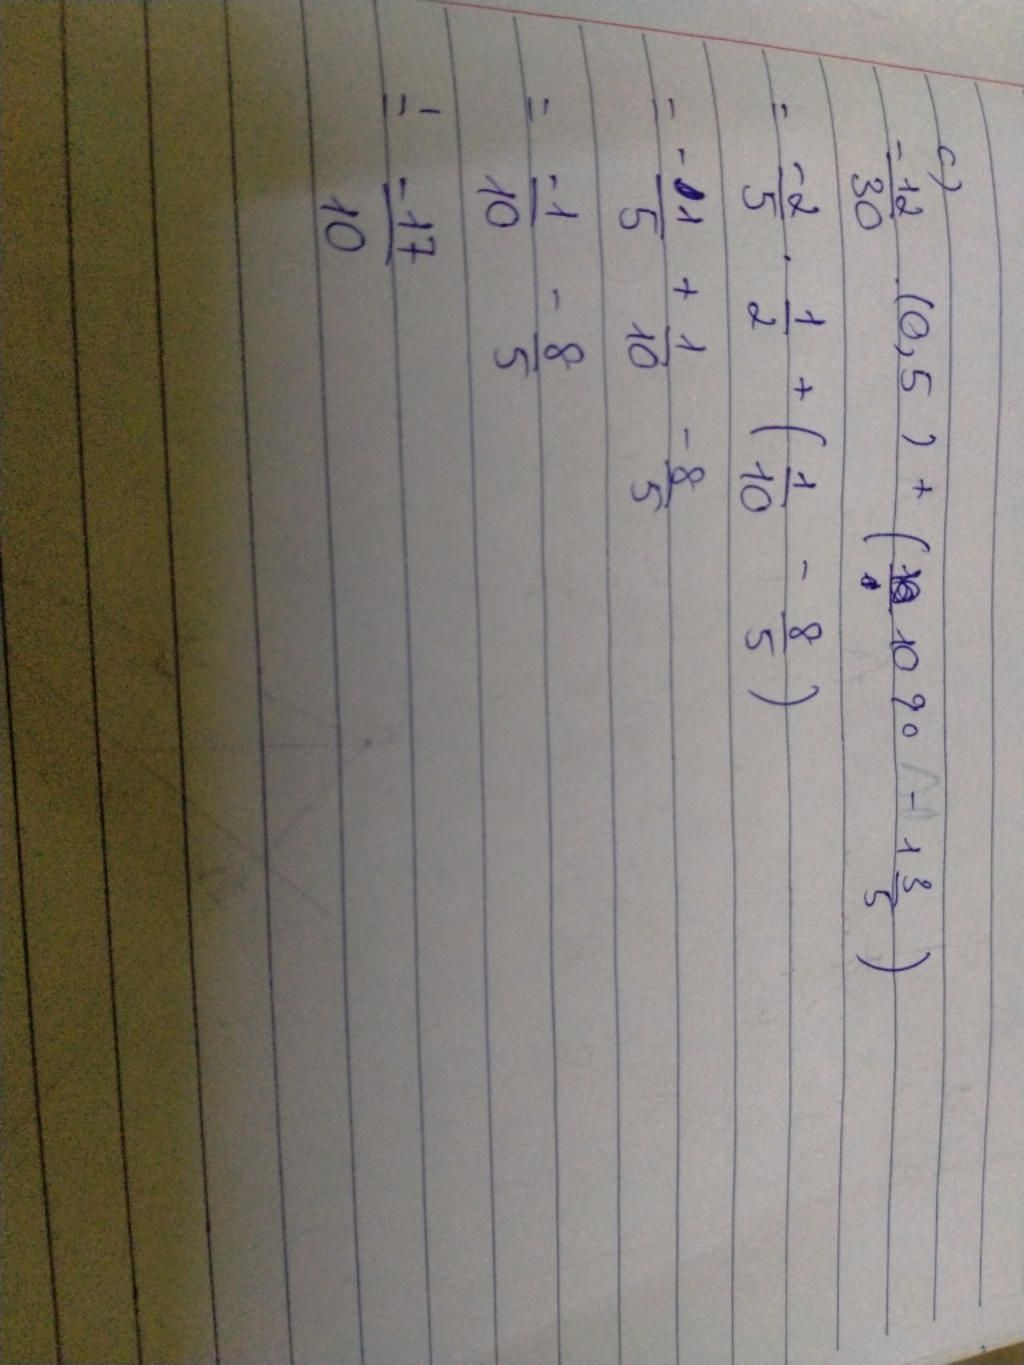 c)
-12/30 . (0,5) + (10% - 1 3/5)
= -2/5 . 1/2 + (1/10 - 8/5)
= -1/5 + 1/10 - 8/5
= -1/10 - 8/5
= -17/10